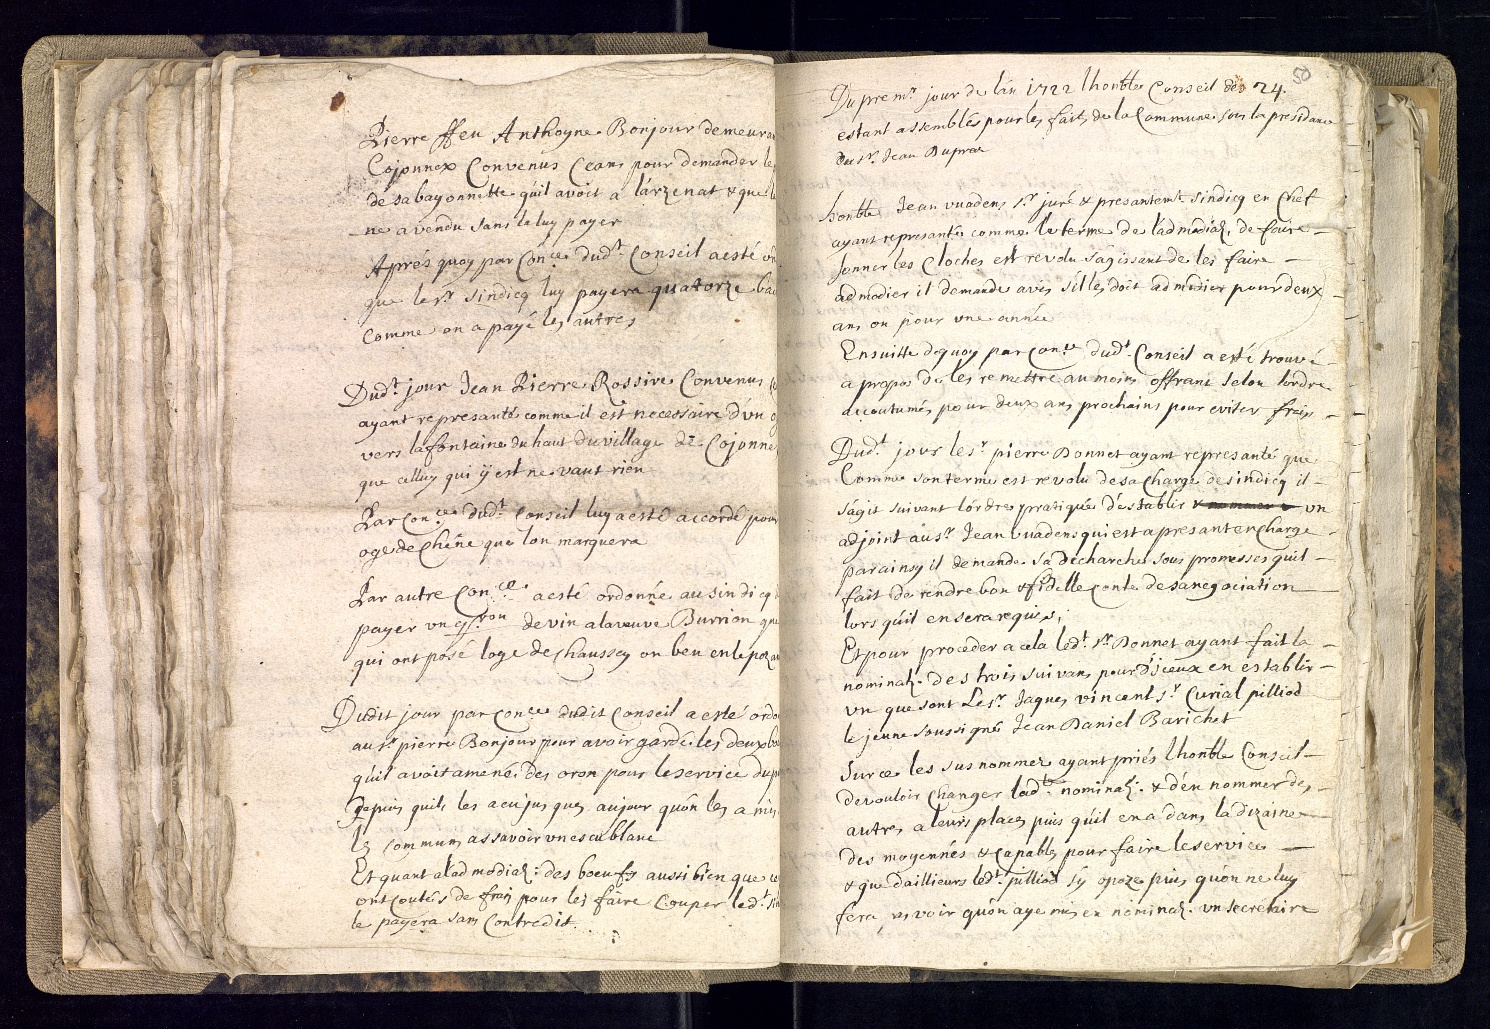 Pierre ffeu Anthoyne Bonjour demeura
Cojonnex Convenus Ceans pour demander le
de sa bayonnette quil avoit a l'arzenat & que l
ne a vendu sans le luy payer
Aprés quoy par Con.ce dud.t Conseil a esté
que le s.r sindicq luy payera quatorze ba
comme on a payé les autres
Dud.t jour Jean Pierre Rossire Convenus
ayant representé comme il est necessaire d'un o
vers la fontaine du haut du village de Cojonne
que celluy qui ÿ est ne vaut rien
Par Con.ce dud.t Conseil luy a esté accordé pour
oge de Chêne que lon marquera
Par autre Con.ce a esté ordonné au sindicq
payer un de vin a la veuve Burrion qu
qui ont posé loge de Chaussey on beu en le poza
Dudit jour par Con.ce dudit Conseil a esté ordo
au s.r pierre Bonjour pour avoir gardé les deux bo
qu'il avoit amené des oron pour le service du p
Depuis quil les a eu jusques aujour quôn les a mis
les communs assavoir un escu blanc
Et quant a lad modiaõ: des boeufs aussi bien que ce
ont coutés de frais pour les faire Couper led.t sin
le payera sans Contredit.
50
Du prem.r jour de lân 1722 lhonble Conseil des 24.
estant assemblés pour les faits de la Commune sous la presidance
du s.r Jean Dupraz
honble Jean vuadens s.r juré & presantem.t sindicq en Chef
ayant representé comme le terme de l'admodiaõ. de faire
sonner les Cloches est revolu s'agissant de les faire
admodier il demande avis sil les doit admodier pour deux
ans ou pour une année
Ensuitte dequoy par Con.ce dud.t Conseil a esté trouvé
a propos de les remettre au moins offrant selon lordre
accoutumés pour deux ans prochains pour eviter frais
Dud.t jour le s.r pierre Bonnet ayant representé que
Comme son terme est revolu de sa Charge de sindicq il
s'agit suivant lôrdre pratiqué d'establir & nommer un
adjoint au s.r Jean vuadens qui est a presant en charge
parainsy il demande sa décharche sous promesses quil
fait de rendre bon & fidelle conte de sa negociation
lors qu'il en sera requis,
Et pour proceder a cela led.t s.r Bonnet ayant fait la
nominaõ. des trois suivans pour d'jceux en establir
un que sont Le s.r Jaques vincent s.r Curial pilliod
le jeune soussigné Jean Daniel Barichet
Sur ce les susnommez ayant priés lhonble Conseil
de vouloir Changer lad.te nominaõ. & dén nommer des
autres a leurs places puis qu'il en a dans la dizaine
des moyennés & capables pour faire le service
& que daillieurs led.t pilliod s'y opoze puis quôn ne luy
fera voir quôn aye mis en nominaõ. un secretaire